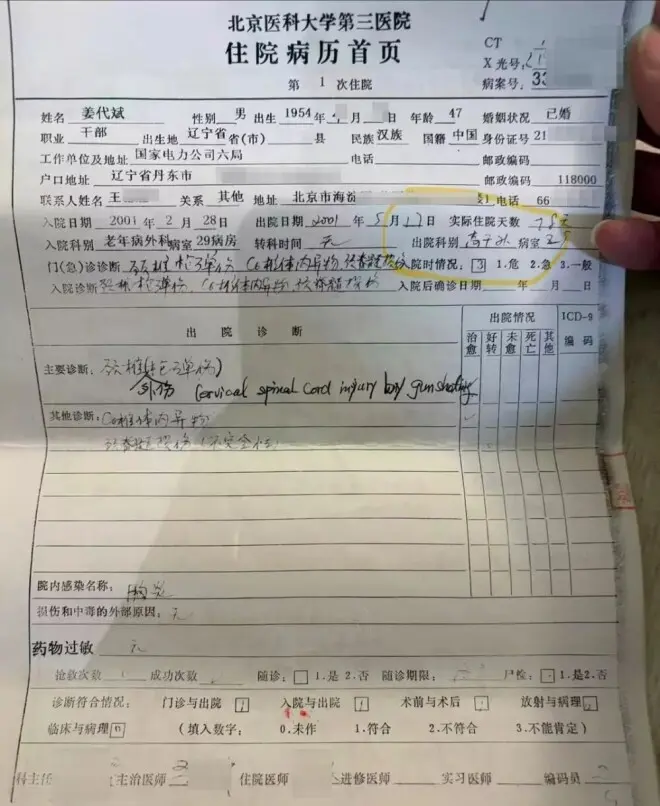 北京医科大学第三医院
住院病历首页
第 1 次住院
CT
X光号:
病案号: 33
姓名 姜代斌 性别 男 出生 1954年 月 日 年龄 47 婚姻状况 已婚
职业 干部 出生地 辽宁省省(市) 县 民族 汉族 国籍 中国 身份证号 21
工作单位及地址 国家电力公司六局 电话 邮政编码
户口地址 辽宁省丹东市 邮政编码 118000
联系人姓名 王 关系 其他 地址 北京市海 电话 66
入院日期 2001 年 2 月 28日 出院日期 2001 年 5 月 17日 实际住院天数 78天
入院科别 老年病外科 病室 29病房 转科时间 无 出院科别 病室 2
门(急)诊诊断 颈椎枪弹伤 C6椎体内异物 颈脊髓损伤 入院时情况: 3 1.危 2.急 3.一般
入院诊断 颈椎枪弹伤, C6椎体内异物 颈脊髓损伤 入院后确诊日期 年 月 日
出院诊断 出院情况 ICD-9
治愈 好转 未愈 死亡 其他 编码
主要诊断: 颈椎枪弹伤
外伤 Cervical spinal cord injury by gunshoting
其他诊断: C6椎体内异物
颈脊髓损伤 (不完全性)
院内感染名称: 肺炎
损伤和中毒的外部原因: 无
药物过敏 无
抢救次数 成功次数 随诊: 1.是 2.否 随诊期限: 尸检: 1.是2.否
诊断符合情况: 门诊与出院 1 入院与出院 1 术前与术后 1 放射与病理
临床与病理 0 (填入数字: 0.未作 1.符合 2.不符合 3.不能肯定)
科主任 主治医师 住院医师 进修医师 实习医师 编码员